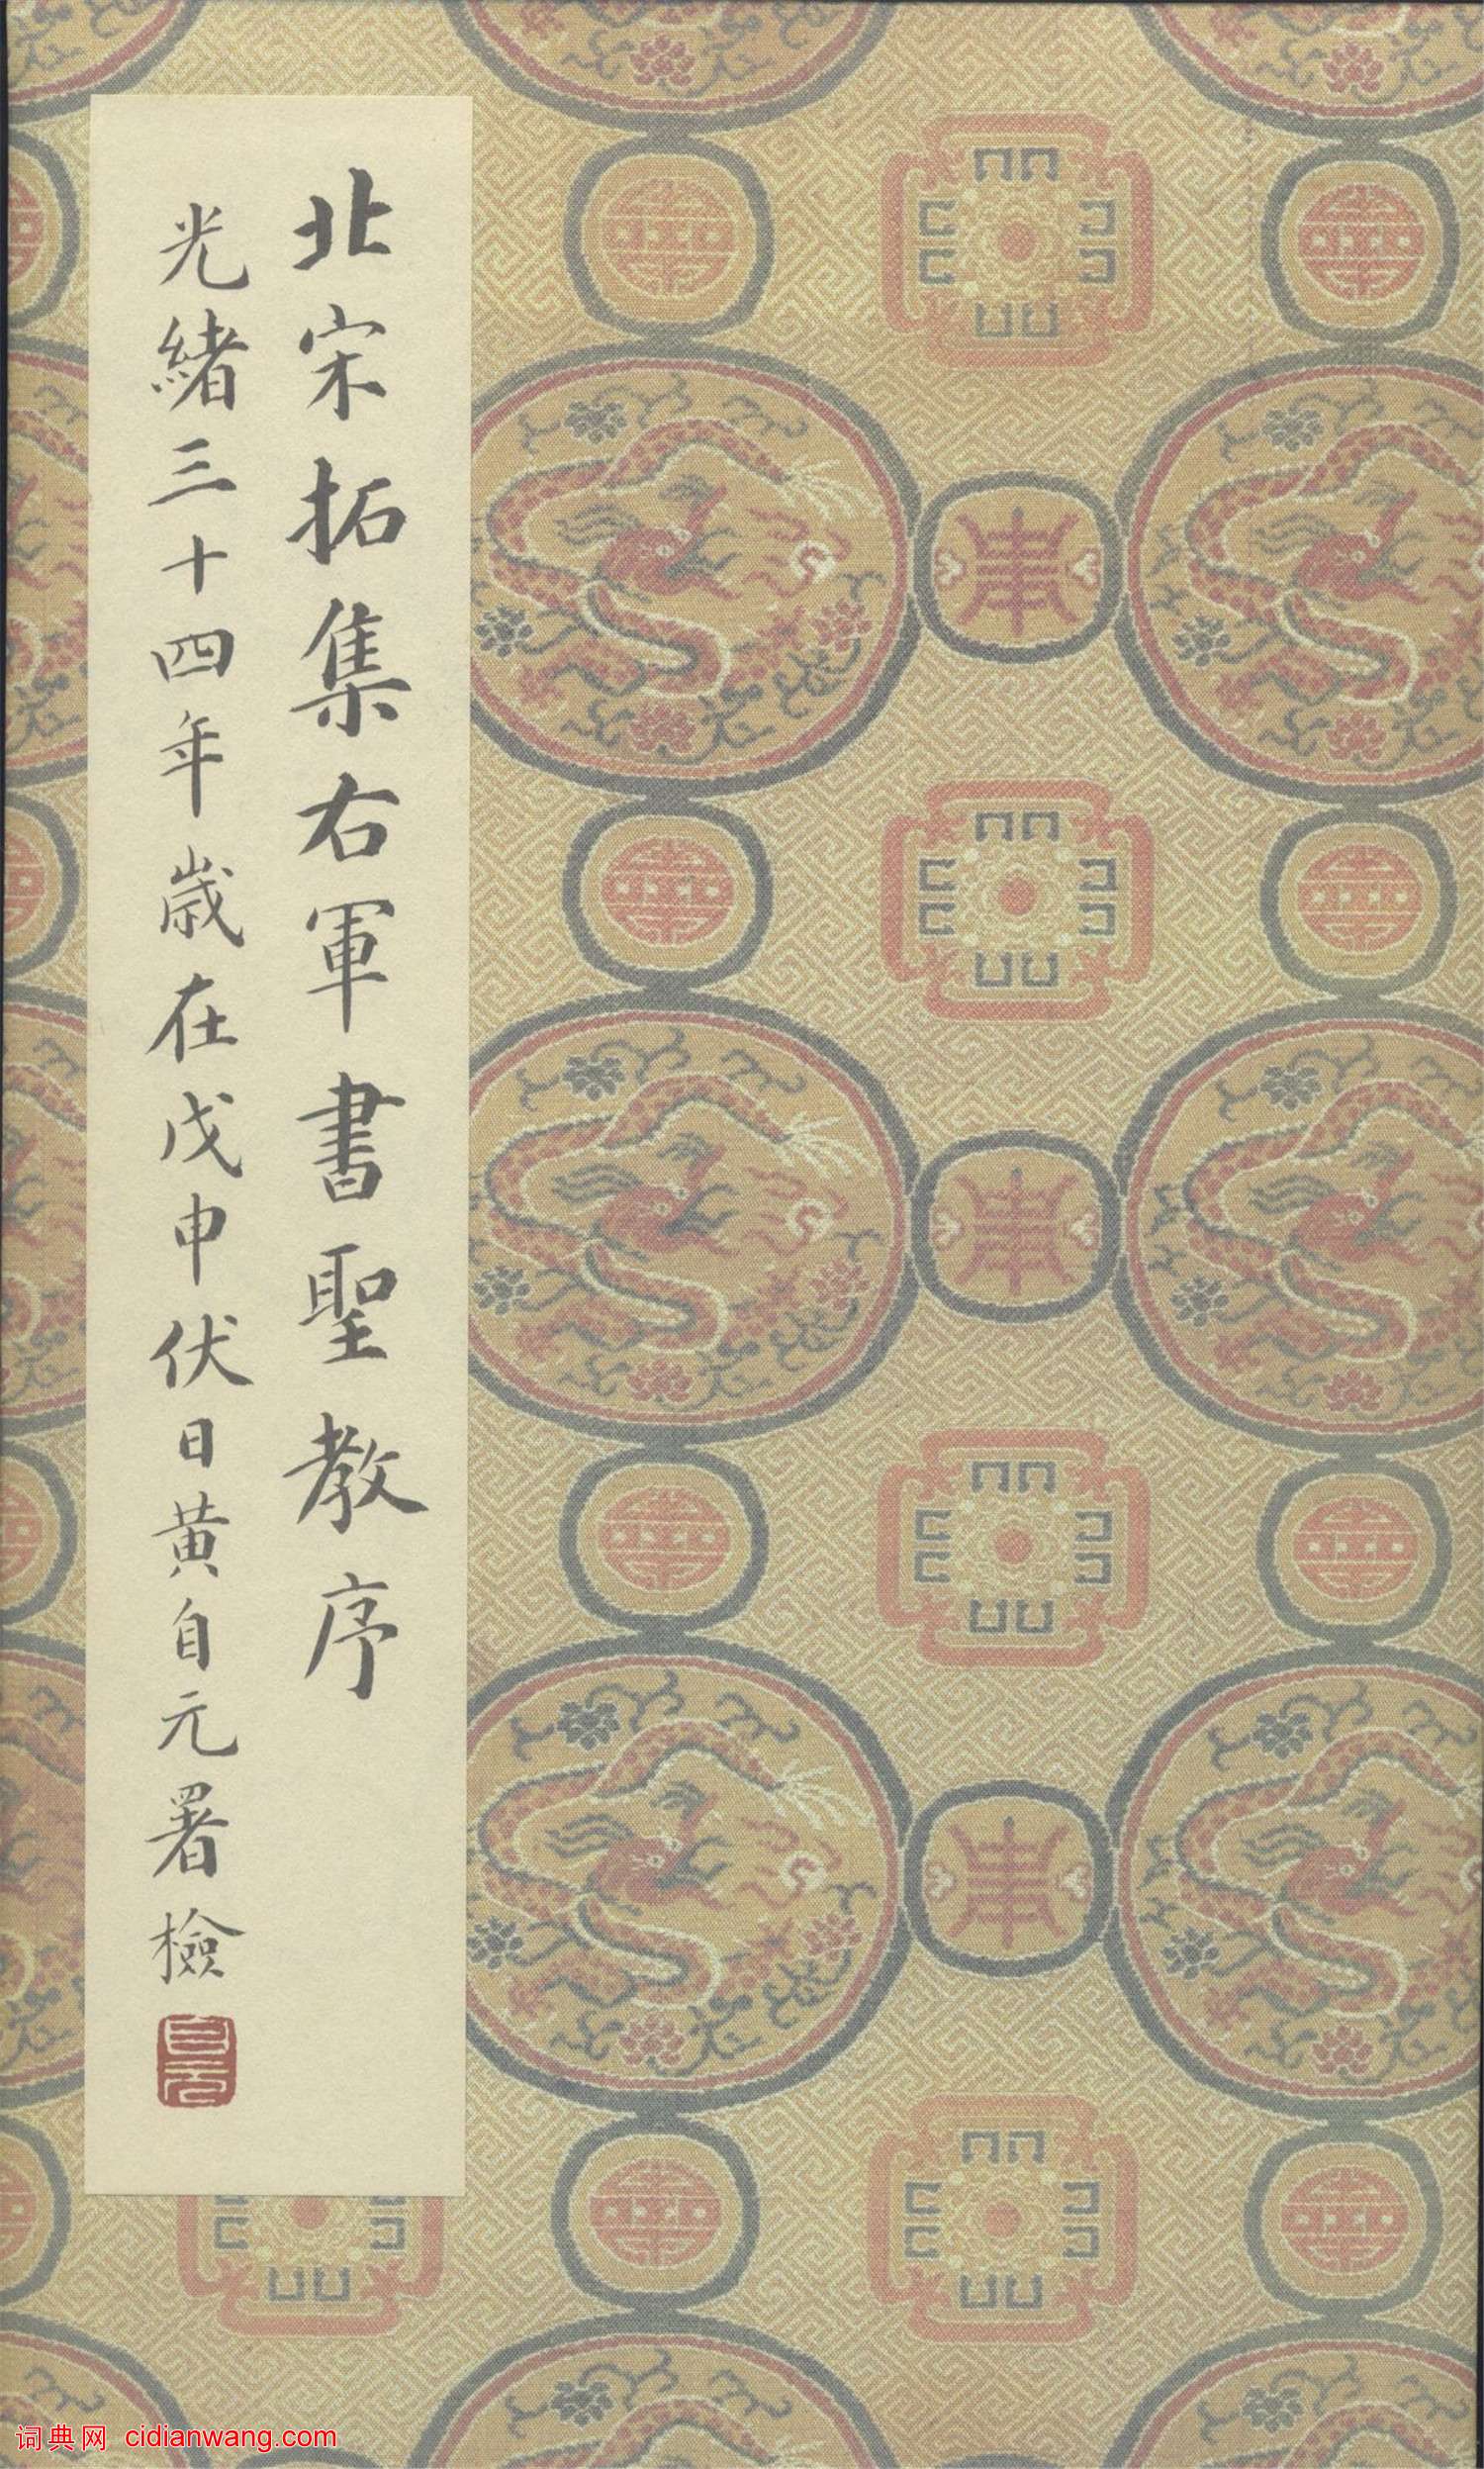 北宋拓集右軍書聖教序
光緒三十四年歲在戊申伏日黃自元署檢
自元
词典网 cidianwang.com